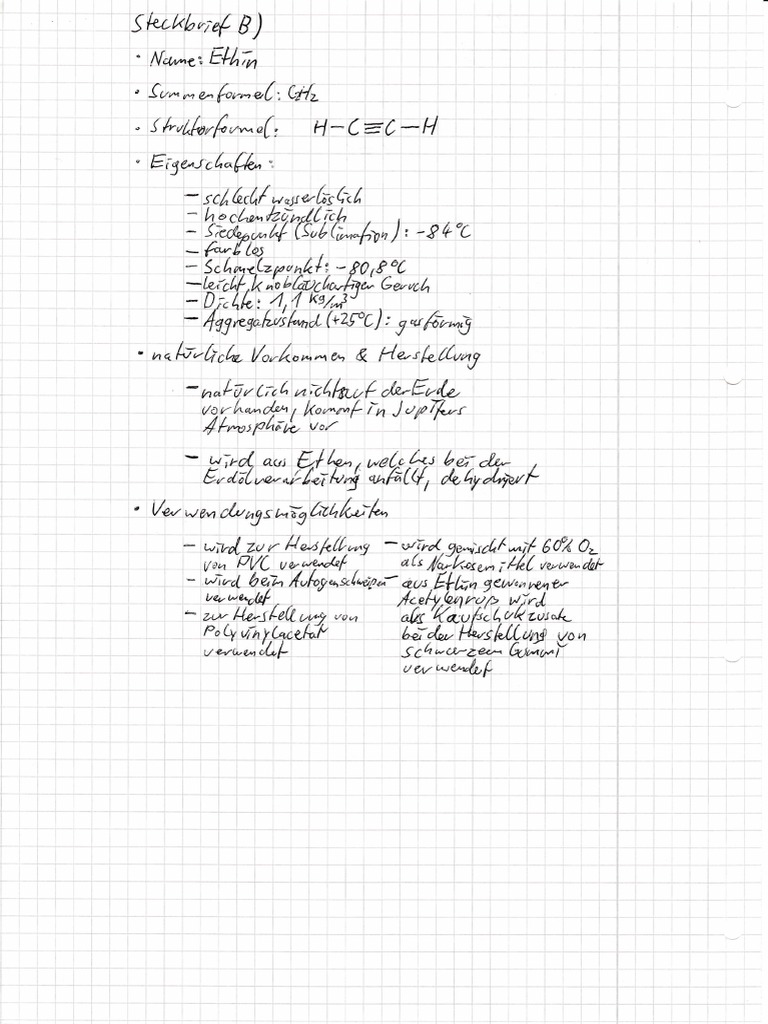 Steckbrief B)
• Name: Ethin
• Summenformel: C₂H₂
• Strukturformel: H–C≡C–H
• Eigenschaften:
– schlecht wasserlöslich
– hochentzündlich
– Siedepunkt (Sublimation): -84°C
– farblos
– Schmelzpunkt: -80,8°C
– leicht, knoblauchartiger Geruch
– Dichte: 1,1 kg/m³
– Aggregatzustand (+25°C): gasförmig
• natürliche Vorkommen & Herstellung
– natürlich nicht auf der Erde
vorhanden, kommt in Jupiters
Atmosphäre vor
– wird aus Ethen, welches bei der
Erdölverarbeitung anfällt, dehydriert
• Verwendungsmöglichkeiten
– wird zur Herstellung
von PVC verwendet
– wird beim Autogenschweißen
verwendet
– zur Herstellung von
Polyvinylacetat
verwendet
– wird gemischt mit 60% O₂
als Narkosemittel verwendet
– aus Ethin gewonnener
Acetylenruß wird
als Kautschukzusatz
bei der Herstellung von
schwarzem Gummi
verwendet